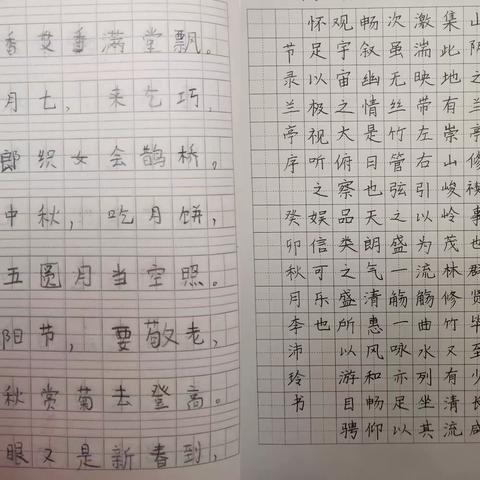 香艾香满堂飘。
月七，来乞巧，
郎织女会鹊桥，
中秋，吃月饼，
五圆月当空照。
阳节，要敬老，
秋赏菊去登高。
眼又是新春到，
山阴之兰亭修禊事也群贤毕至少长咸
集此地有崇山峻岭茂林修竹又有清流
激湍映带左右引以为流觞曲水列坐其
次虽无丝竹管弦之盛一觞一咏亦足以
畅叙幽情是日也天朗气清惠风和畅仰
观宇宙之大俯察品类之盛所以游目骋
怀足以极视听之娱信可乐也
节录兰亭序 癸卯秋月李沛玲书